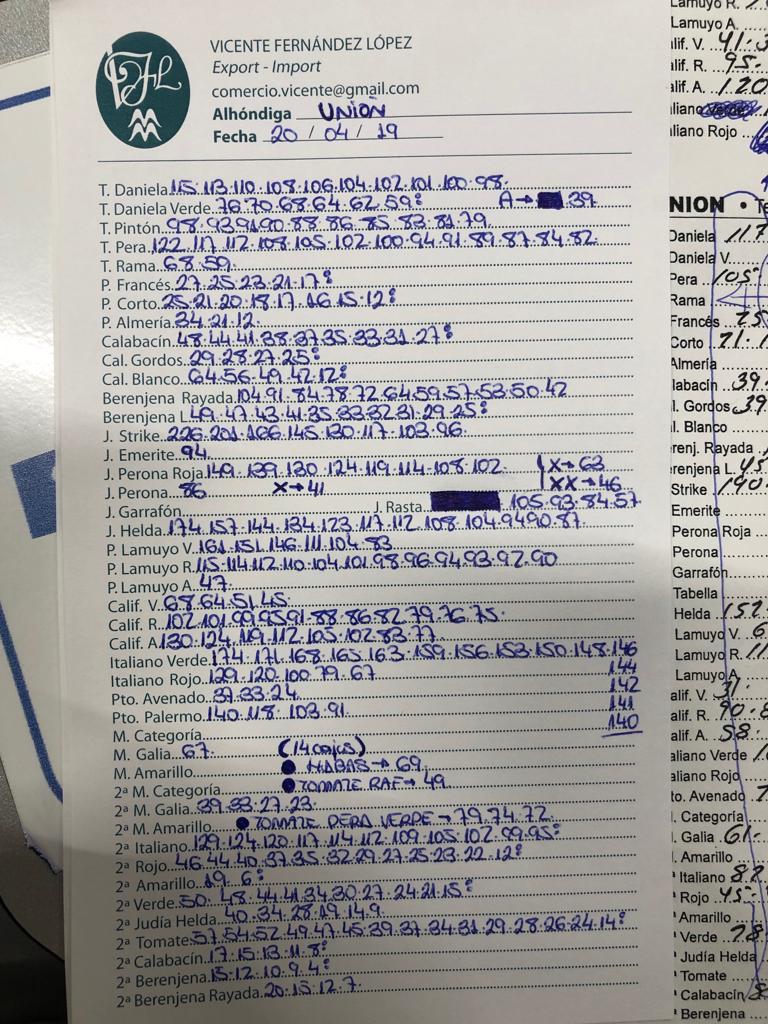 VICENTE FERNÁNDEZ LÓPEZ
Export - Import
comercio.vicente@gmail.com
Alhóndiga UNIÓN
Fecha 20 / 04 / 19
T. Daniela 115.113.110.108.106.104.102.101.100.98.
T. Daniela Verde 76.70.68.64.62.59. A→ 39
T. Pintón 98.93.91.90.88.86.85.83.81.79
T. Pera 122.117.112.108.105.102.100.94.91.89.87.84.82
T. Rama 68.59
P. Francés 27.25.23.21.17
P. Corto 25.21.20.18.17.16.15.12
P. Almería 34.21.12.
Calabacín 48.44.41.38.37.35.33.31.27
Cal. Gordos 29.28.27.25
Cal. Blanco 64.56.49.42.12
Berenjena Rayada 104.91.84.78.72.64.59.57.53.50.42
Berenjena L 49.47.43.41.35.33.32.31.29.25
J. Strike 226.201.166.145.130.117.103.96.
J. Emerite 94
J. Perona Roja 149.139.130.124.119.114.108.102. X→63
J. Perona 86 X→41 XX→46
J. Garrafón J. Rasta 105.93.84.57
J. Helda 174.157.144.134.123.117.112.108.104.94.90.87
P. Lamuyo V. 161.151.146.111.104.83
P. Lamuyo R. 115.114.112.110.104.101.98.96.94.93.92.90
P. Lamuyo A. 47
Calif. V. 68.64.51.45
Calif. R. 102.101.99.95.91.88.86.82.79.76.75.
Calif. A 130.124.119.112.105.102.83.77
Italiano Verde 174.171.168.165.163.159.156.153.150.148.146
Italiano Rojo 129.120.100.79.67 144
Pto. Avenado 37.33.24 142
Pto. Palermo 140.118.103.91. 141
M. Categoría 140
M. Galia 67. (14 cajas)
M. Amarillo HABAS→69
2ª M. Categoría TOMATE RAF→49
2ª M. Galia 39.33.27.23
2ª M. Amarillo TOMATE PERA VERDE→79.74.72
2ª Italiano 129.124.120.117.114.112.109.105.102.99.95
2ª Rojo 46.44.40.37.35.32.29.27.25.23.22.12
2ª Amarillo 19.6
2ª Verde 50.48.44.41.34.30.27.24.21.15
2ª Judía Helda 40.34.28.19.14.9
2ª Tomate 57.54.52.49.47.45.39.37.34.31.29.28.26.24.14
2ª Calabacín 17.15.13.11.8
2ª Berenjena 15.12.10.9.4
2ª Berenjena Rayada 20.15.12.7
Lamuyo R.
Lamuyo A.
alif. V. 41.
alif. R. 95.
alif. A. 120
aliano
aliano Rojo
NION
Daniela 117
Daniela V.
Pera 105
Rama
Francés 25
Corto 21.
Almería
labacín 39.
l. Gordos 39
l. Blanco
erenj. Rayada
erenjena L. 45
Strike 190
Emerite
Perona Roja
Perona
Garrafón
Tabella
Helda 152
Lamuyo V. 6
Lamuyo R. 11
Lamuyo A.
alif. V. 31.
alif. R. 90.8
alif. A. 58.
aliano Verde
aliano Rojo
to. Avenado
. Categoría
. Galia 61.
. Amarillo
Italiano 82
Rojo 45
Amarillo
Verde 28
Judía Helda
Tomate
Calabacín
Berenjena